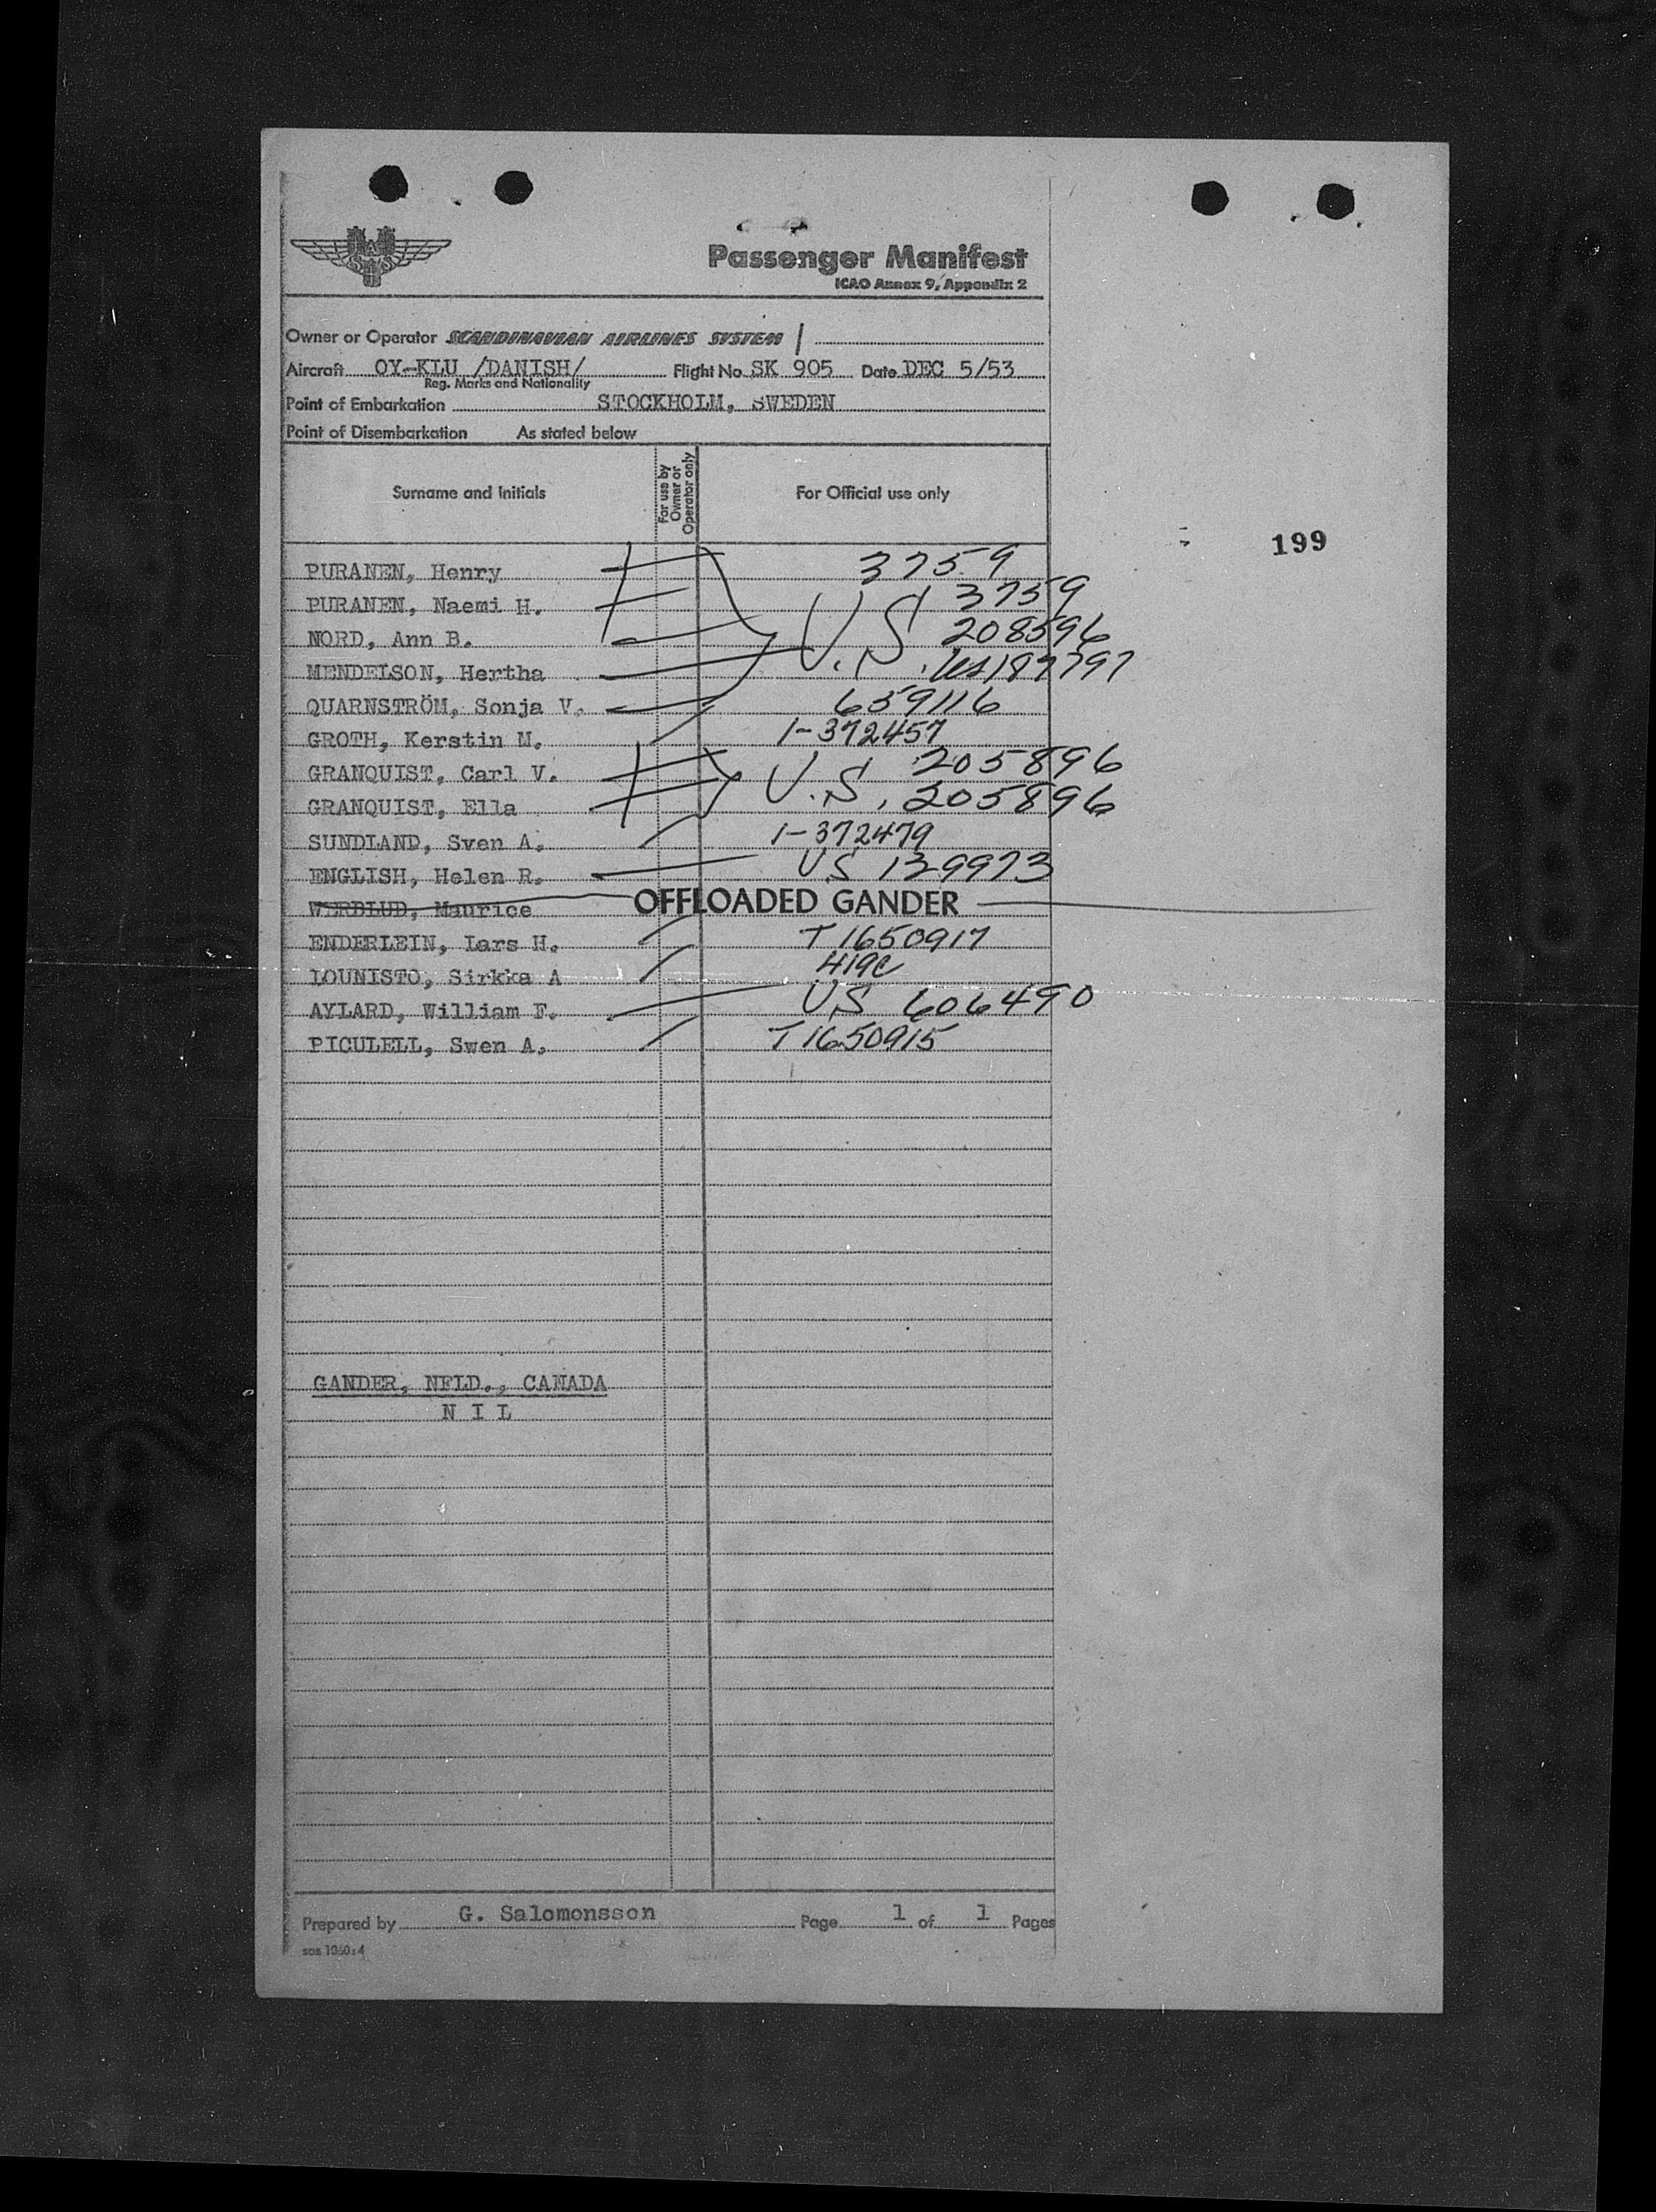 SAS
Passenger Manifest
ICAO Annex 9, Appendix 2
Owner or Operator SCANDINAVIAN AIRLINES SYSTEM
Aircraft OY-KLU /DANISH/ Flight No. SK 905 Date DEC 5/53
Reg. Marks and Nationality
Point of Embarkation STOCKHOLM, SWEDEN
Point of Disembarkation As stated below
Surname and Initials For use by Owner or Operator only For Official use only
199
PURANEN, Henry 3759
PURANEN, Naemi H. 3759
NORD, Ann B. U.S. 208596
MENDELSON, Hertha 187797
QUARNSTRÖM, Sonja V. 659116
GROTH, Kerstin M. 1-372457
GRANQUIST, Carl V. U.S. 205896
GRANQUIST, Ella 205896
SUNDLAND, Sven A. 1-372479
ENGLISH, Helen R. US 129973
WERBLUD, Maurice OFFLOADED GANDER
ENDERLEIN, Lars H. T1650917
LOUNISTO, Sirkka A 419C
AYLARD, William F. US 606490
PICULELL, Swen A. T1650915
GANDER, NFLD., CANADA
N I L
Prepared by G. Salomonsson Page 1 of 1 Pages